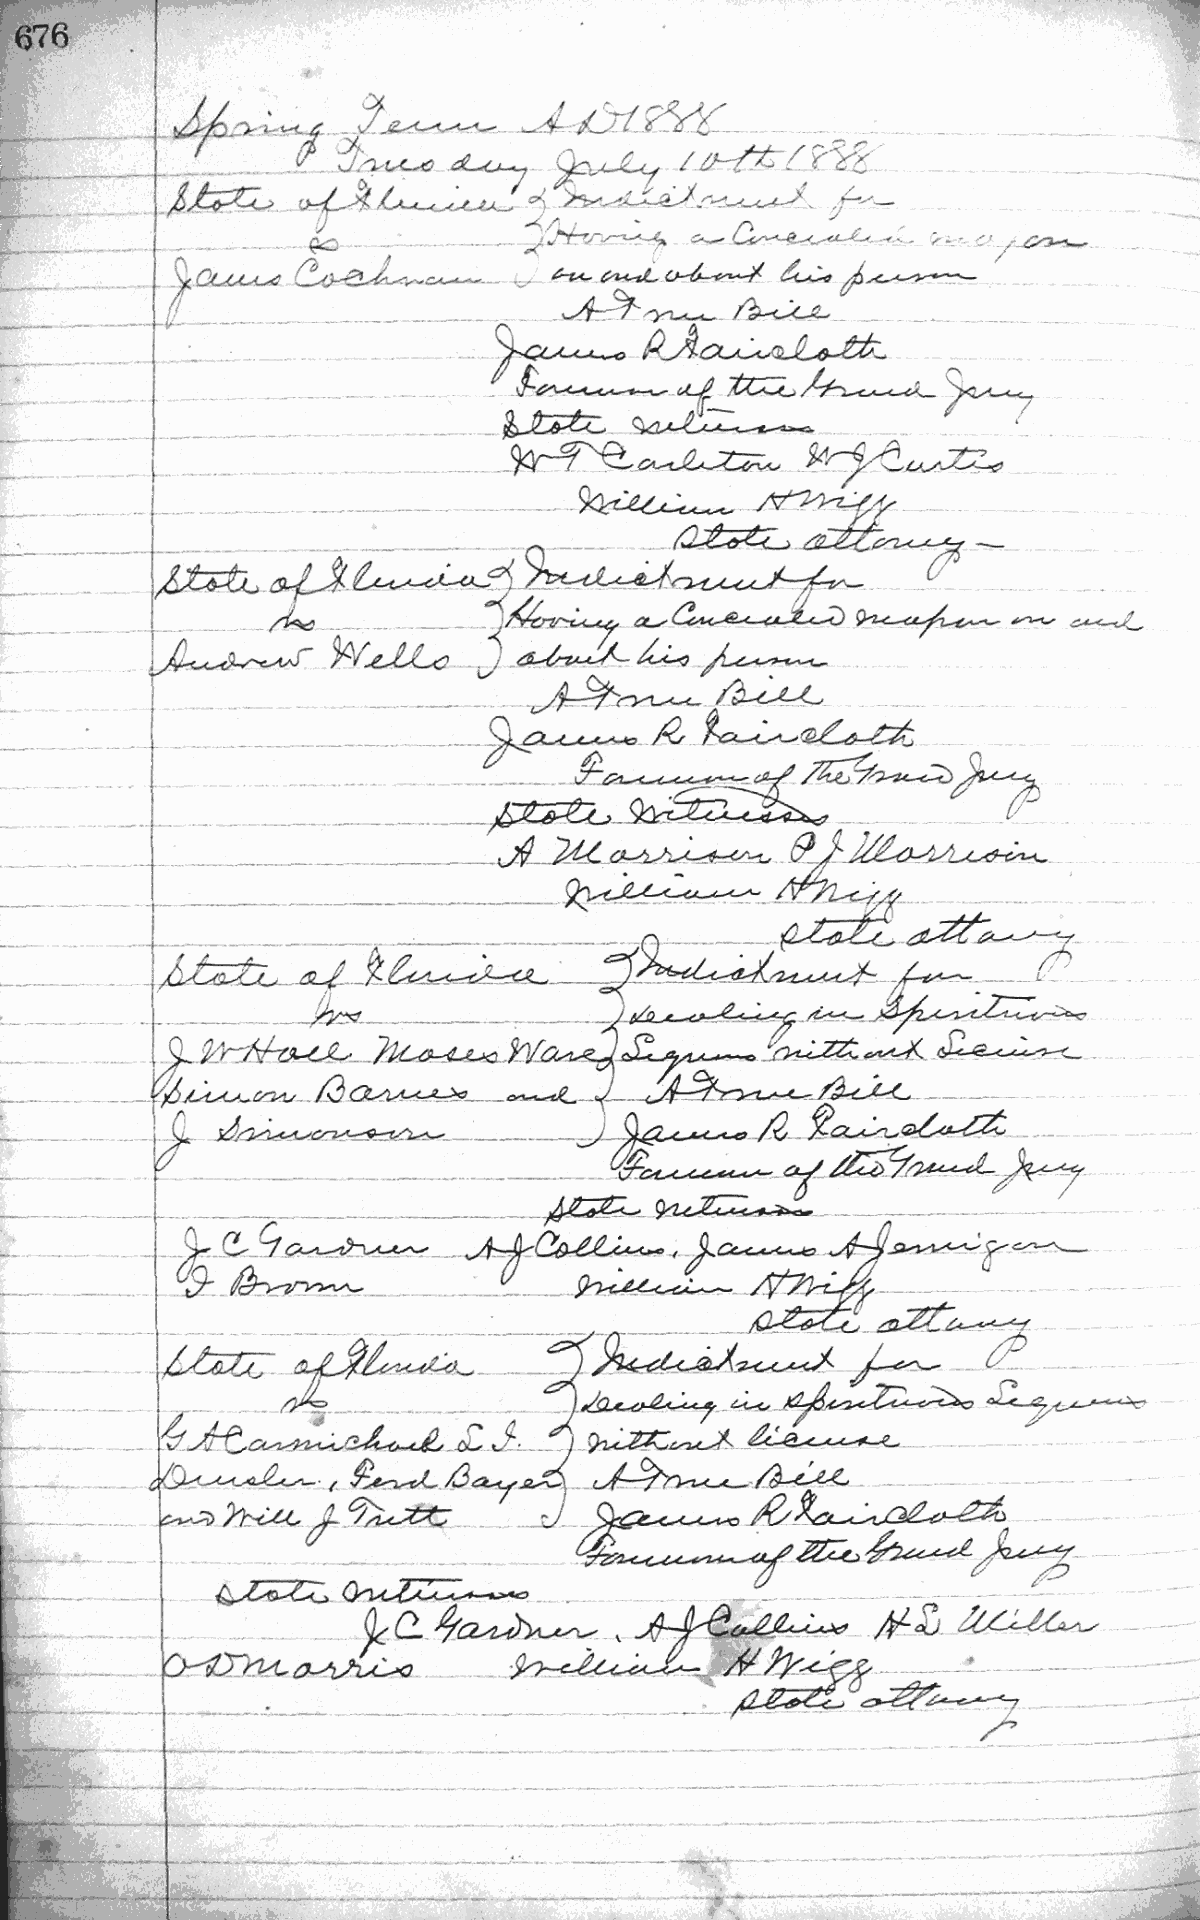 676
Spring Term A D 1888
Tuesday July 10th 1888
State of Florida } Indictment for
vs } Having a Concealed weapon
James Cochran } on and about his person
A True Bill
James R Faircloth
Foreman of the Grand Jury
State witnesses
W T Carleton W J Curtis
William H Wigg
State attorney -
State of Florida } Indictment for
vs } Having a Concealed weapon on and
Andrew Wells } about his person
A True Bill
James R Faircloth
Foreman of the Grand Jury
State Witnesses
A Morrison P J Morrison
William H Wigg
State attorney
State of Florida } Indictment for
vs } Dealing in Spirituous
J W Hall Moses Ware } Liquors without License
Simon Barnes and } A True Bill
J Simonson } James R Faircloth
Foreman of the Grand Jury
State witnesses
J C Gardner A J Collins, James A Jernigan
I Brown William H Wigg
State attorney
State of Florida } Indictment for
vs } Dealing in spirituous Liquors
G A Carmichael L I. } without license
Densler, Ferd Bayer } A True Bill
and Will J Trett } James R Faircloth
Foreman of the Grand Jury
State witnesses
J C Gardner, A J Collins H L Miller
O D Morris William H Wigg
State attorney